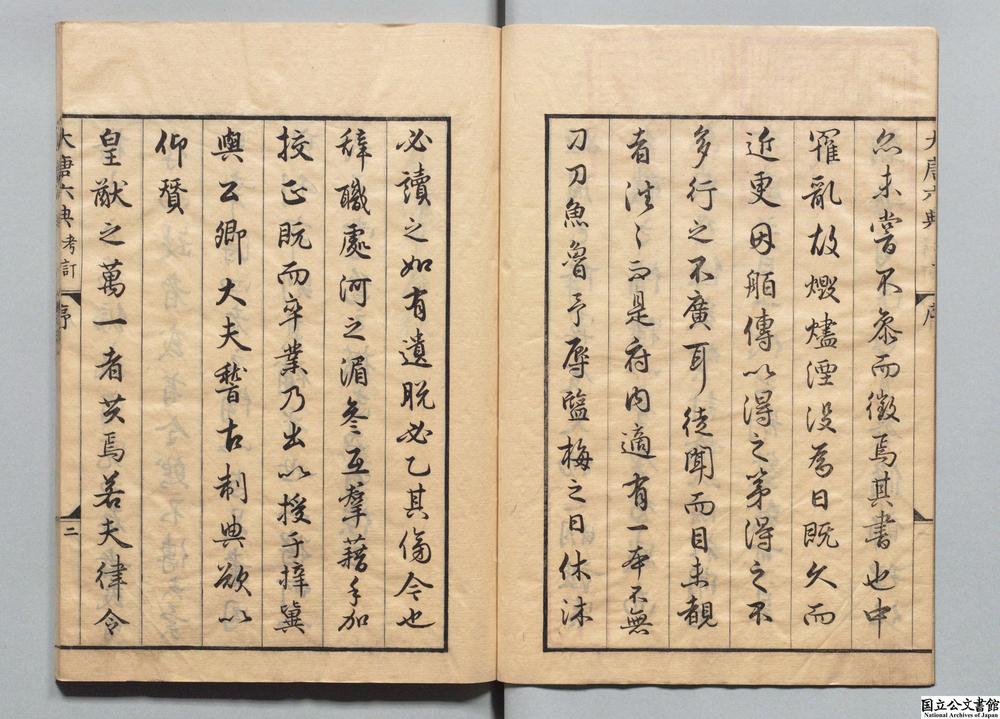 尒未嘗不叅而徵焉其書也中
罹亂故燬燼湮没為日既久而
近更因舶傳以得之第得之不
多行之不廣耳徒聞而目未覩
者往〻而是府内適有一本不無
刀刀魚魯予辱塩梅之日休沐
必讀之如有遺脱必乙其傷今也
辭職處河之湄叅互羣藉手加
挍正既而卒業乃出以授于擇冀
與公卿大夫瞽古制典欲以
仰賛
皇猷之萬一者共焉若夫律令
大唐六典考訂
序
二
大唐六典
序
国立公文書館
National Archives of Japan